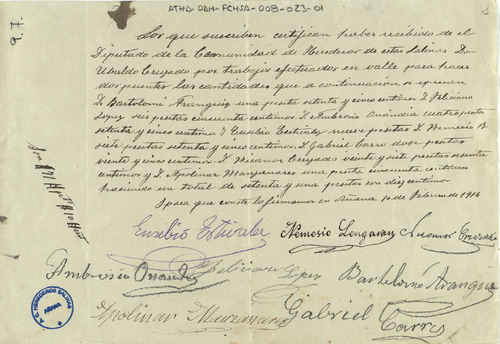 ATHA-DAH-FCHSA-008-023-01
9.7.
Los que suscriben certifican haber recibido de el
Diputado de la Comunidad de Herederos de estas Salinas Don
Ubaldo Cruzado por trabajos efectuados en valle para hacer
dos puentes las cantidades que a continuacion se expresan
D. Bartolomé Aranguiz una peseta setenta y cinco centimos D. Feliciano
Lopez seis pesetas cincuenta centimos D. Ambrosio cuatro pesetas
setenta y cinco centimos D. Eusebio nueve pesetas D. Nemesio
siete pesetas setenta y cinco centimos D. Gabriel Carro doce pesetas
veinte y cinco centimos D. Nicanor Cruzado veinte y siete pesetas sesenta
centimos y D. Apolinar Manzanares una peseta cincuenta centimos
haciendo un total de setenta y una pesetas diez centimos
Y para que conste lo firmamos en Añana 10 Febrero de 1914
Eusebio Estivalez Nemesio Nicanor Cruzado
Ambrosio Feliciano Lopez Bartolomé Aranguiz
Apolinar Manzanares Gabriel Carro
A.C. HEREDEROS SALINAS
AÑANA